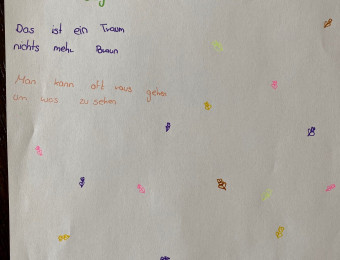 Das ist ein Traum
nichts mehr Braun
Man kann oft raus gehen
um was zu sehen